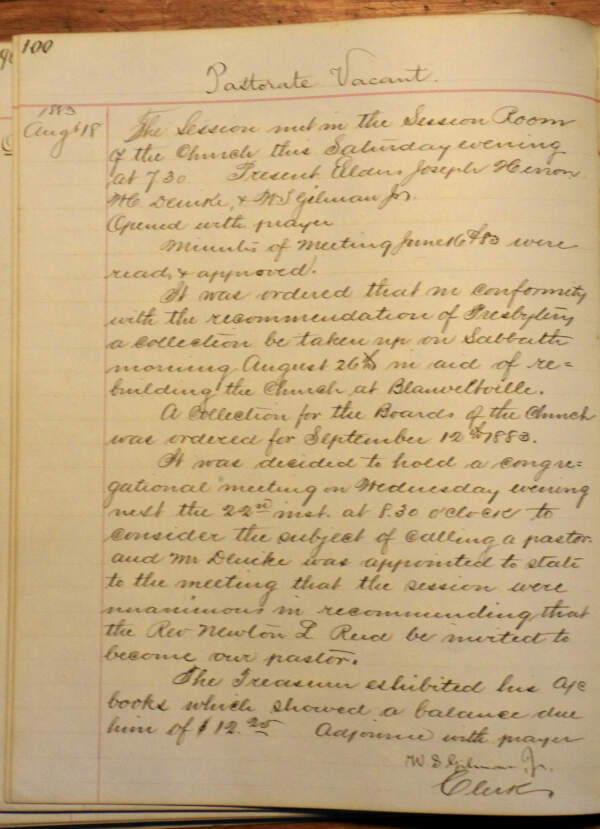 100
Pastorate Vacant.
1883
Augt 18
The Session met in the Session Room
of the Church this Saturday evening
at 7 30 Present Elders Joseph Hirron
W.C. Denike, & W S Gilman Jr.
Opened with prayer
Minutes of Meeting June 16th 83 were
read & approved.
It was ordered that in conformity
with the recommendation of Presbytery
a collection be taken up on Sabbath
morning August 26th in aid of re=
building the Church at Blauveltville.
A Collection for the Boards of the Church
was ordered for September 12th 1883.
It was decided to hold a congre=
gational meeting on Wednesday evening
next the 22nd inst. at 8.30 o'clock to
consider the subject of calling a pastor.
and Mr Denike was appointed to state
to the meeting that the session were
unanimous in recommending that
the Rev Newton L Reed be invited to
become our pastor.
The Treasurer exhibited his A/c
books which showed a balance due
him of $12.25 Adjourned with prayer
W. S. Gilman Jr.
Clerk